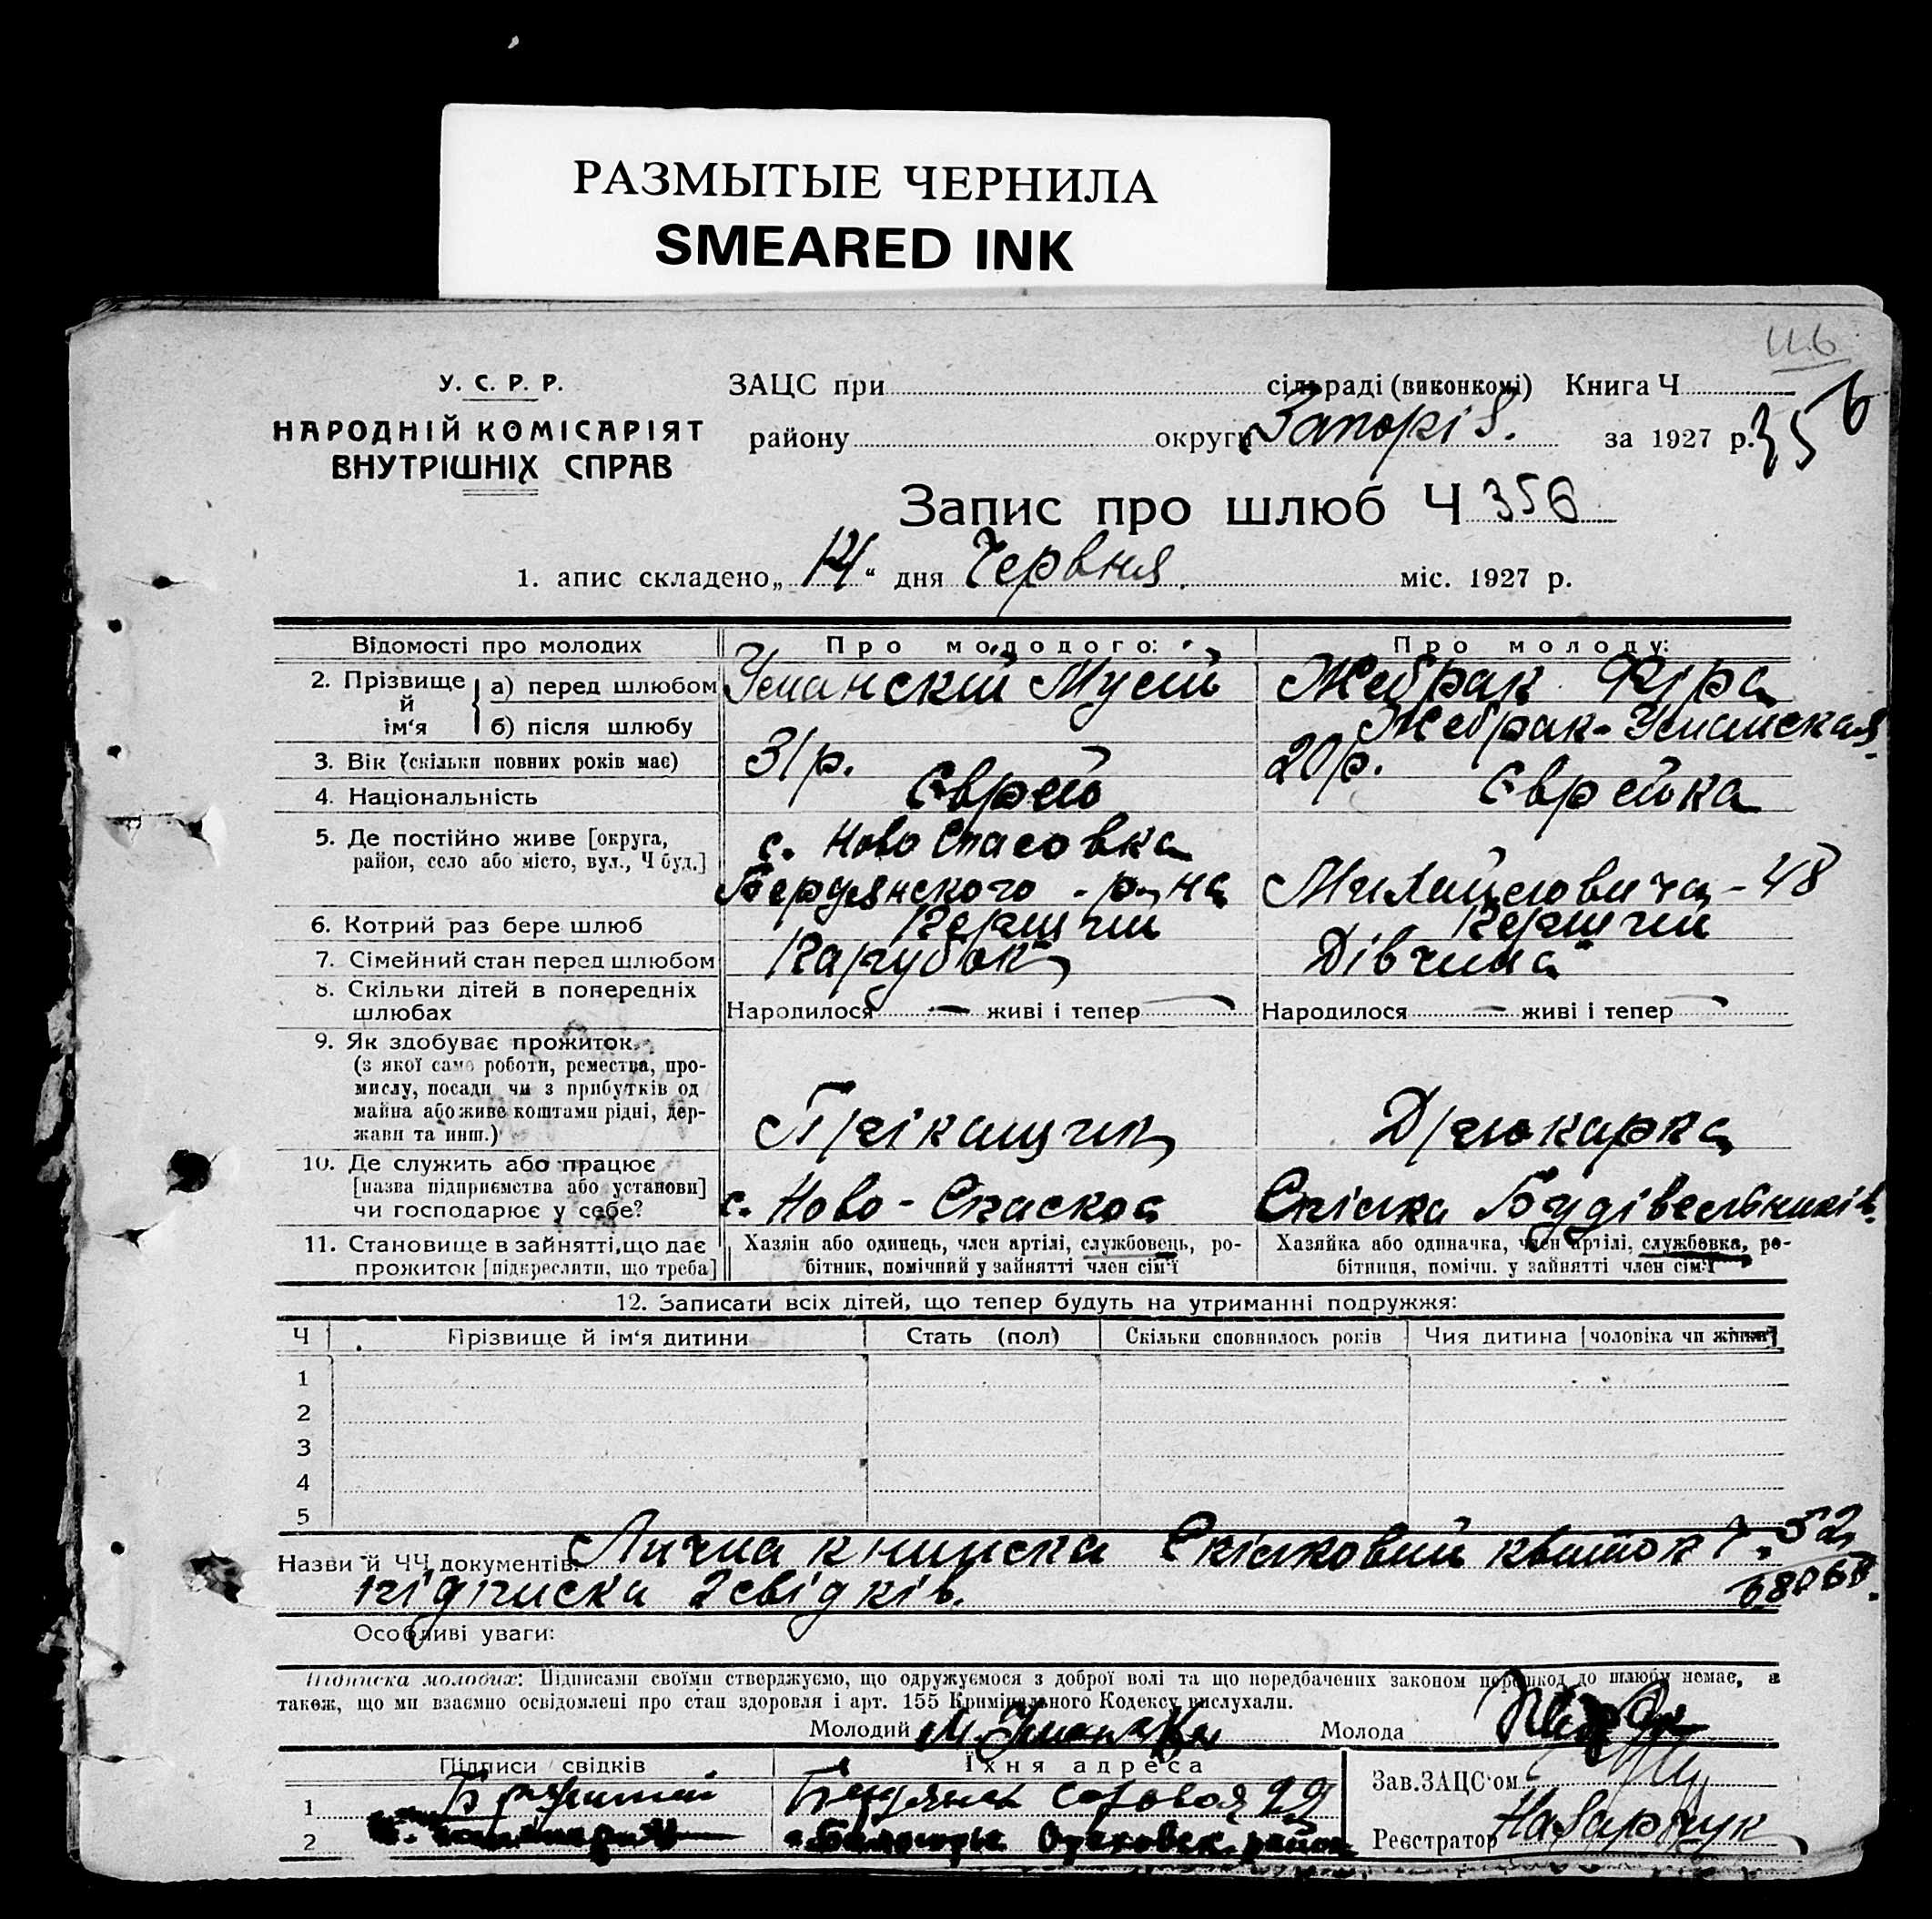 РАЗМЫТЫЕ ЧЕРНИЛА
SMEARED INK
116
У. С. Р. Р.
НАРОДНІЙ КОМІСАРІЯТ
ВНУТРІШНІХ СПРАВ
ЗАЦС при сільраді (виконкомі) Книга Ч
району округи Запоріз. за 1927 р.
356
Запис про шлюб Ч 356
1. апис складено „14“ дня Червня міс. 1927 р.
Відомості про молодих Про молодого: Про молоду:
2. Прізвище й ім'я
а) перед шлюбом Уманскій Мусій Жебрак Фіра
б) після шлюбу Жебрак-Уманская
3. Вік (скільки повних років має) 31 р. 20 р.
4. Національність Єврей Єврейка
5. Де постійно живе [округа, район, село або місто, вул., Ч буд.] с. Ново Спасовка
Бердянского р-на - 48
6. Котрий раз бере шлюб Перший Перший
7. Сімейний стан перед шлюбом Парубок Дівчина
8. Скільки дітей в попередніх шлюбах Народилося — живі і тепер — Народилося — живі і тепер —
9. Як здобуває прожиток
(з якої само роботи, ремества, про-
мислу, посади чи з прибутків од
майна або живе коштами рідні, дер-
жави та инш.) Прікащик Друкарка
10. Де служить або працює
[назва підприємства або установи]
чи господарює у себе? с. Ново-Спаское Спілка Будівельників
11. Становище в зайнятті, що дає
прожиток [підкреслити, що треба]
Хазяїн або одинець, член артілі, службовець, ро-
бітник, помічний у зайнятті член сім'ї
Хазяйка або одиначка, член артілі, службовка, ро-
бітниця, помічн. у зайнятті член сім'ї
12. Записати всіх дітей, що тепер будуть на утриманні подружжя:
Ч Прізвище й ім'я дитини Стать (пол) Скільки сповнилось років Чия дитина [чоловіка чи жінки]
1
2
3
4
5
Назви й ЧЧ документів: Лична книжка Спілковий квиток
підписка 2 свідків.
Особливі уваги:
Підписка молодих: Підписами своїми стверджуємо, що одружуємося з доброї волі та що передбачених законом перешкод до шлюбу немає, а
також, що ми взаємно освідомлені про стан здоровля і арт. 155 Кримінального Кодексу вислухали.
Молодий М. Молода
Підписи свідків Їхня адреса
1
2 район
Зав. ЗАЦС'ом
Реєстратор Назарчук